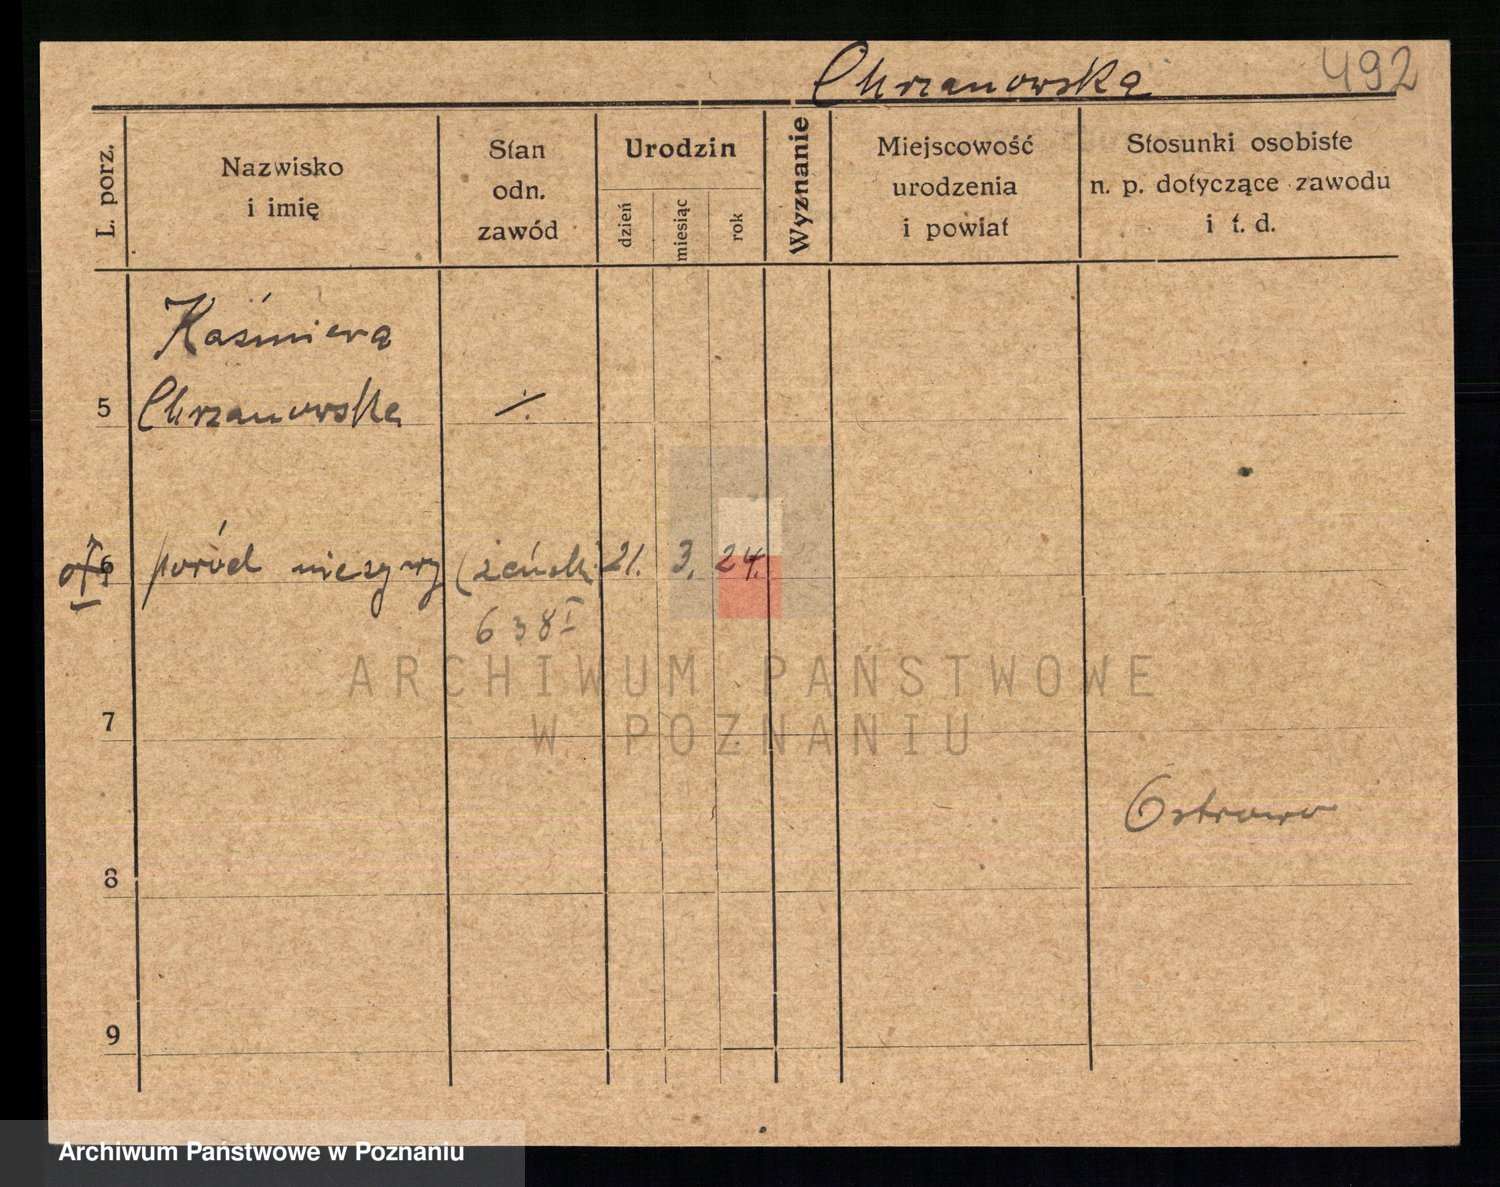 Chrzanowska 492
L. porz.
Nazwisko
i imię
Stan
odn.
zawód
Urodzin
dzień
miesiąc
rok
Wyznanie
Miejscowość
urodzenia
i powiat
Stosunki osobiste
n. p. dotyczące zawodu
i t. d.
Kaśmiera
5 Chrzanowska ./.
6 poród nieżywy (żeńsk) 21. 3. 24.
638 I
ARCHIWUM PAŃSTWOWE
W POZNANIU
7
Ostrowo
8
9
Archiwum Państwowe w Poznaniu